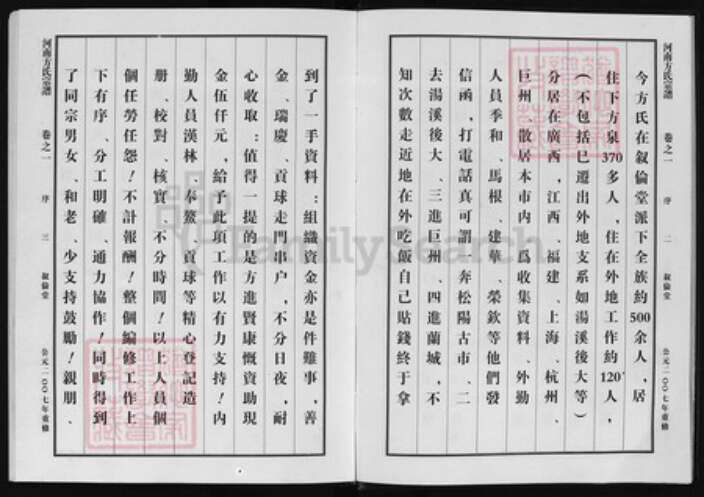 河南方氏宗譜 卷之一 序 二 叙倫堂 公元二〇〇七年重修
今方氏在叙倫堂派下全族約500余人，居
住下方泉370多人，住在外地工作約120人，
（不包括已遷出外地支系如湯溪後大等）
分居在廣西，江西、福建、上海、杭州、
巨州、散居本市内、爲收集資料、外勤
人員季和、馬根、建華、榮欽等他們發
信函，打電話真可謂一奔松陽古市、二
去湯溪後大、三進巨州、四進蘭城，不
知次數走近地在外吃飯自己貼錢終于拿
到了一手資料：組織資金亦是件難事，善
金、瑞慶、貢球走門串户，不分日夜，耐
心收取：值得一提的是方進賢康慨資助現
金伍仟元，給予此項工作以有力支持！内
勤人員漢林、奉簽、貢球等精心登記造
册、校對、核實、不分時間！以上人員個
個任勞任怨！不計報酬！整個編修工作上
下有序、分工明確、通力協作！同時得到
了同宗男女、和老、少支持鼓勵！親朋、
河南方氏宗譜 卷之一 序 三 叙倫堂 公元二〇〇七年重修
FamilySearch